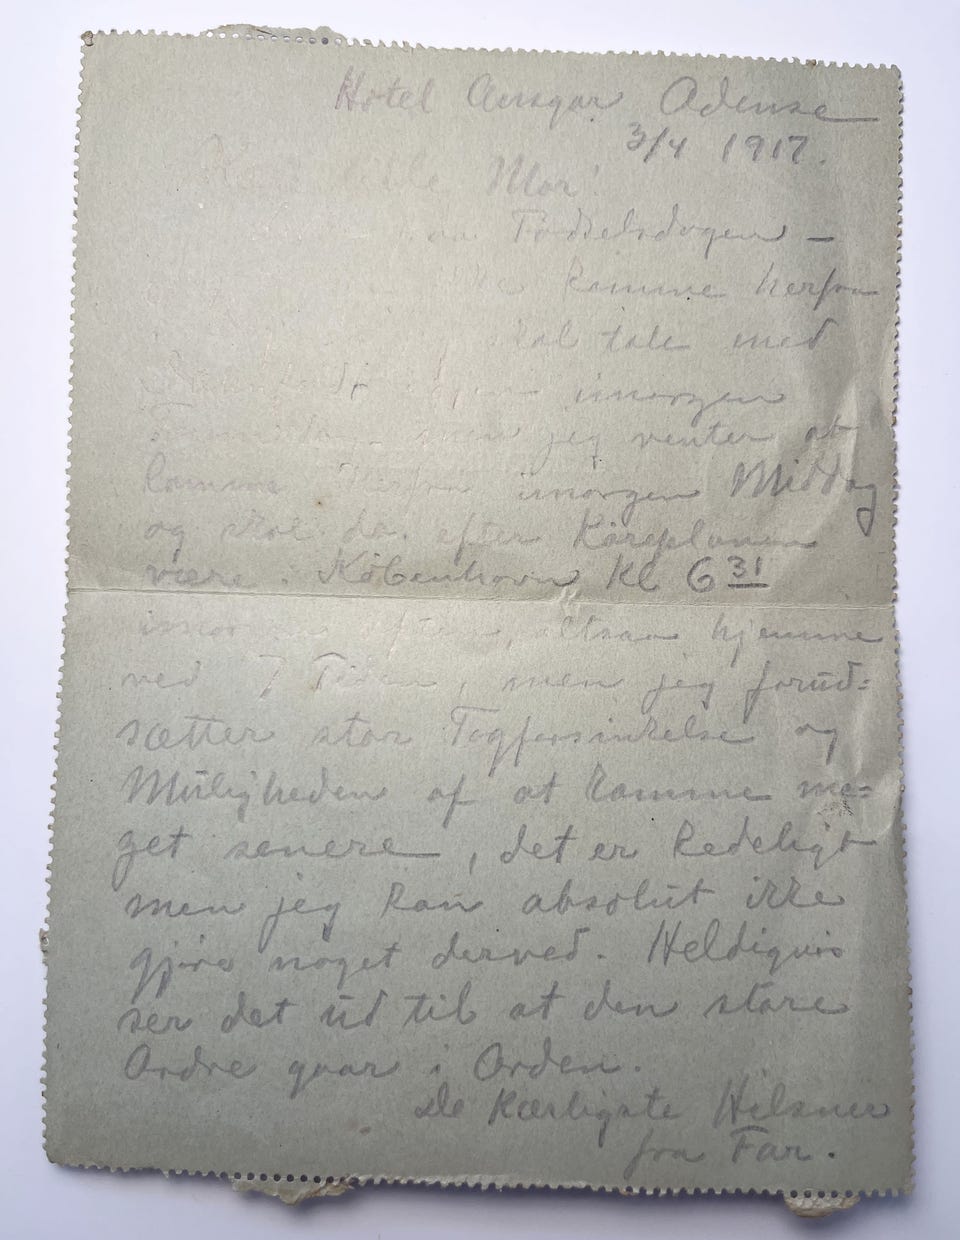 Hotel Ansgar Odense
3/4 1917.
Kære lille Mor!
Fødselsdagen –
komme herfra
skal tale med
imorgen
Formiddag men jeg venter at
komme herfra imorgen Middag
og skal da efter Køreplanen
være i København Kl 6 31
imorgen Aften, altsaa hjemme
ved 7 Tiden, men jeg forud=
sætter stor Togforsinkelse og
Muligheden af at komme me=
get senere, det er kedeligt
men jeg kan absolut ikke
gjøre noget derved. Heldigvis
ser det ud til at den store
Ordre gaar i Orden.
De kærligste Hilsner
fra Far.